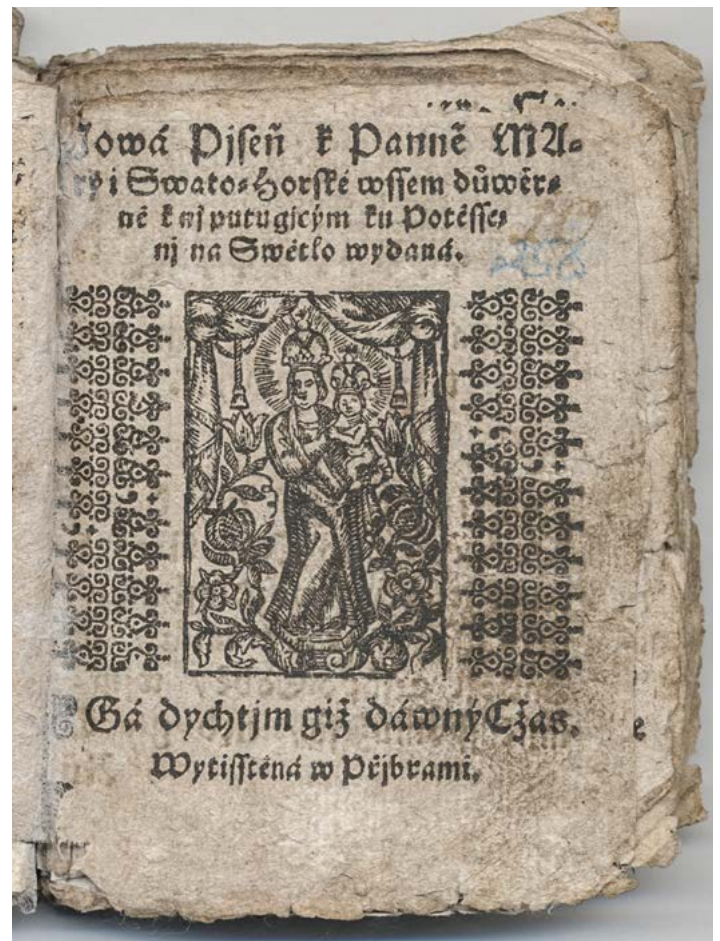 Nowá Pjseň k Panně MA-
ryi Swato-Horské wssem důwěr-
ně k nj putugjcým ku Potěsse-
nj na Swětlo wydaná.
Gá dychtjm giž dáwný Cžas.
Wytisstěná w Přjbrami.